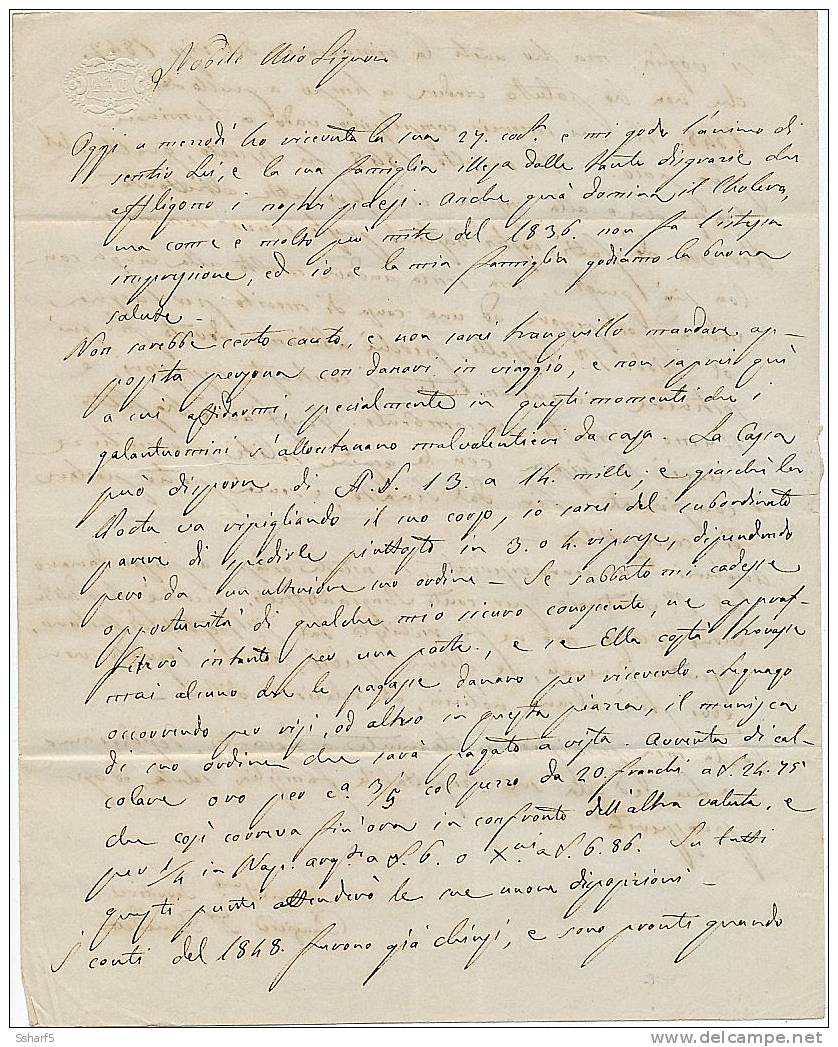 BATH
Nobile Mio Signore
Oggi a mezzodì ho ricevuta la sua 27. corr. e mi gode l'animo di
sentir Lei, e la sua famiglia illesa dalle tante disgrazie che
affligono i nostri paesi. Anche quà domina il Cholera,
ma come è molto più mite del 1836. non fa l'istessa
impressione, ed io e la mia famiglia godiamo la buona
salute.
Non sarebbe certo cauto, e non sarei tranquillo mandare ap-
posita persona con danari in viaggio, e non saprei quì
a cui affidarmi, specialmente in questi momenti che i
galantuomini s'allontanano malvolentieri da casa. La Cassa
può disporre di A.L. 13. a 14. mille; e giacchè la
Posta va ripigliando il suo corso, io sarei del subordinato
parere di spedirle piuttosto in 3. o 4. riprese, dipendendo
però da un ulteriore suo ordine - Se sabbato mi cadesse
opportunità di qualche mio sicuro conoscente, ne approf-
fiterò intanto per una parte, e se Ella costà trovasse
mai alcuno che le pagasse danaro per riceverlo a Legnago
occorrendo per risi, od altro in questa piazza, il munisca
di suo ordine che sarà pagato a vista. Avverta di cal-
colare oro per ca. 3/5 col pezzo da 20. franchi a L. 24.75
che così correva fin'ora in confronto dell'altra valuta, e
per 1/4 in Nap. a L. 6. o a L. 6.86. Su tutti
questi punti attenderò le sue nuove disposizioni -
I conti del 1848. furono già chiusi, e sono pronti quando
Ssharf5
www.delcampe.net